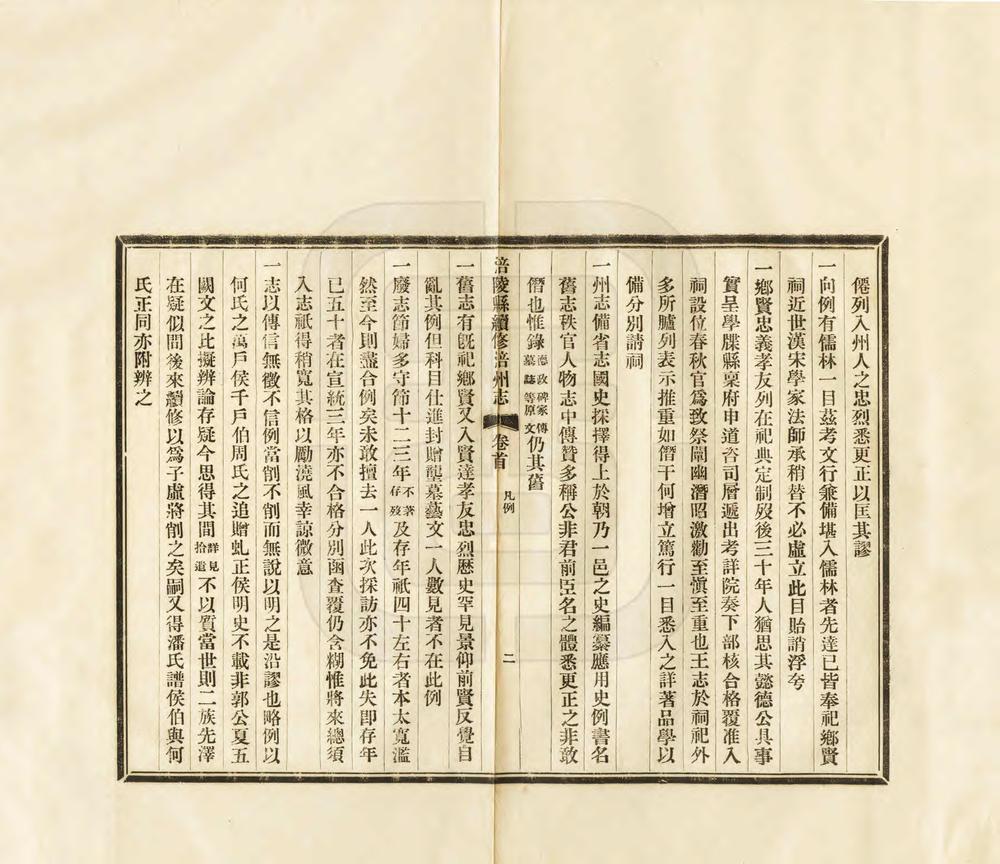 僊列入州人之忠烈悉更正以匡其謬
一向例有儒林一目茲考文行兼備堪入儒林者先達已皆奉祀鄉賢
祠近世漢宋學家法師承稍替不必虛立此目貽誚浮夸
一鄉賢忠義孝友列在祀典定制歿後三十年人猶思其懿德公具事
實呈學牒縣稟府申道咨司層遞出考詳院奏下部核合格覆准入
祠設位春秋官爲致祭闡幽潛昭激勸至愼至重也王志於祠祀外
多所臚列表示推重如僭干何增立篤行一目悉入之詳著品學以
備分別請祠
一州志備省志國史採擇得上於朝乃一邑之史編纂應用史例書名
舊志秩官人物志中傳贊多稱公非君前臣名之體悉更正之非敢
僭也惟錄德政碑家傳墓誌等原文仍其舊
涪陵縣續修涪州志 卷首 凡例 二
一舊志有旣祀鄉賢又入賢達孝友忠烈歷史罕見景仰前賢反覺自
亂其例但科目仕進封贈塋墓藝文一人數見者不在此例
一廢志節婦多守節十二三年不著存歿及存年祇四十左右者本太寬濫
然至今則盡合例矣未敢擅去一人此次採訪亦不免此失卽存年
已五十者在宣統三年亦不合格分別函查覆仍含糊惟將來總須
入志祇得稍寬其格以勵澆風幸諒微意
一志以傳信無徵不信例當削不削而無說以明之是沿謬也略例以
何氏之萬戶侯千戶伯周氏之追贈虬正侯明史不載非郭公夏五
闕文之比擬辨論存疑今思得其間詳見拾遺不以質當世則二族先澤
在疑似間後來續修以爲子虛將削之矣嗣又得潘氏譜侯伯與何
氏正同亦附辨之